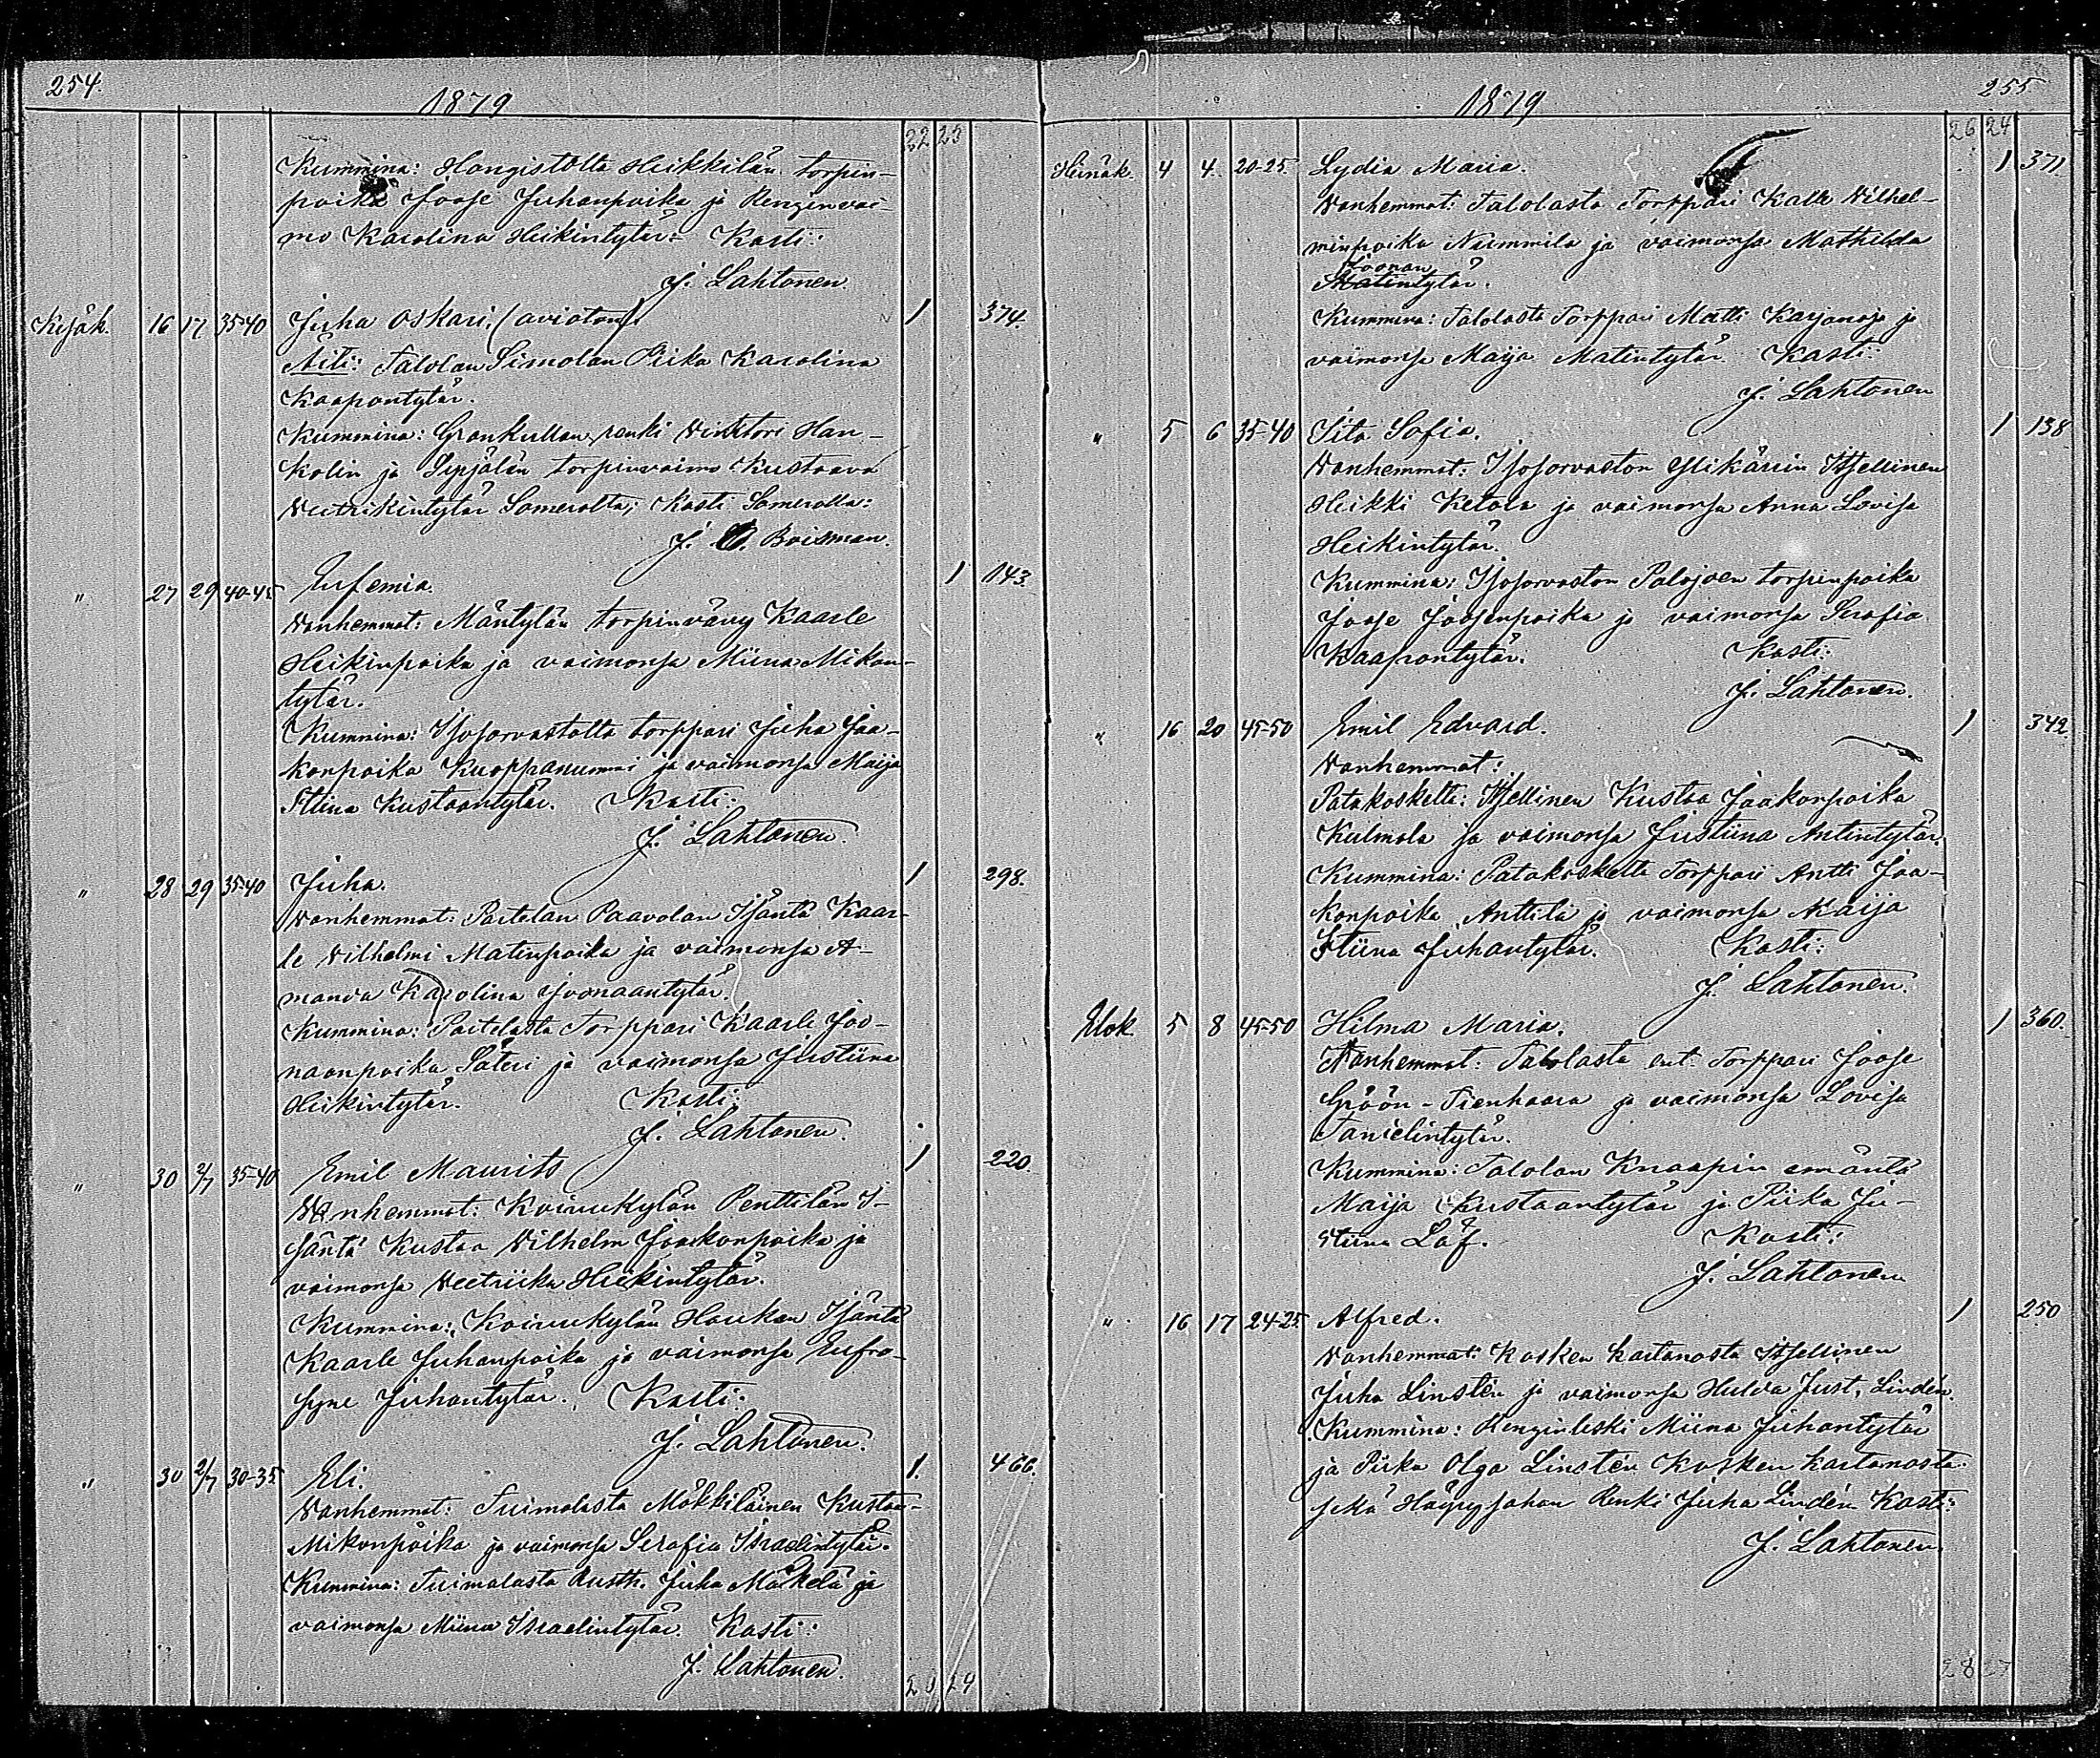 254.
1879
22 23
Kummina: Hongistolta Heikkilän torpin-
poika Joose Juhanpoika ja Renginvai-
mo Karolina Heikintytär. Kasti:
J. Lahtonen.
Kesäk. 16 17 35-40 Juha Oskari. (avioton) 1 374.
Äiti: Talolan Simolan Piika Karolina
Kaapontytär.
Kummina: Grankullan renki Viktori Han-
kolin ja Syrjälän torpinvaimo Kustaava
Veetrikintytär Somerolta; Kasti Somerolla:
J. Boisman.
" 27 29 40-45 Eufemia. 1 143
Vanhemmat: Mäntylän torpinvävy Kaarle
Heikinpoika ja vaimonsa Miina Mikon-
tytär.
Kummina: Isosorvastolta torppari Juha Jaa-
konpoika Kuoppanummi ja vaimonsa Maija
Stiina Kustaantytär. Kasti:
J. Lahtonen.
" 28 29 35-40 Juha. 1 298.
Vanhemmat: Partelan Paavolan Isäntä Kaar-
le Vilhelmi Matinpoika ja vaimonsa A-
manda Karolina Joonaantytär.
Kummina: Partelasta Torppari Kaarle Joo-
naanpoika Säteri ja vaimonsa Justiina
Heikintytär. Kasti:
J. Lahtonen.
" 30 2/7 35-40 Emil Maurits 1 220
Vanhemmat: Koivukylän Penttilän I-
säntä Kustaa Vilhelm Jaakonpoika ja
vaimonsa Veetriika Heikintytär.
Kummina: Koivukylän Haukan Isäntä
Kaarle Juhanpoika ja vaimonsa Eufro-
syne Juhantytär. Kasti:
J. Lahtonen.
" 30 2/7 30-35 Eli. 1. 466.
Vanhemmat: Tuimalasta Mäkkiläinen Kustaa
Mikonpoika ja vaimonsa Serafia Israelintytär.
Kummina: Tuimalasta Rustth. Juha Mäkelä ja
vaimonsa Miina Israelintytär. Kasti:
J. Lahtonen.
24
255
1879
26 24
Heinäk. 4 4 20-25 Lydia Maria. 1 371
Vanhemmat: Talolasta Torppari Kalle Vilhel-
minpoika Nummila ja vaimonsa Mathilda
Joonan
Matintytär.
Kummina: Talolasta Torppari Matti Karjanoja ja
vaimonsa Maija Matintytär. Kasti:
J. Lahtonen
" 5 6 35-40 Iita Sofia. 1 138
Vanhemmat: Isosorvaston Ylikärrin Itsellinen
Heikki Ketola ja vaimonsa Anna Lovisa
Heikintytär.
Kummina: Isosorvaston Palojoen torpinpoika
Joose Joosenpoika ja vaimonsa Serafia
Kaapontytär. Kasti:
J. Lahtonen.
" 16 20 45-50 Emil Edvard. 1 342
Vanhemmat:
Patakoskelta: Itsellinen Kustaa Jaakonpoika
Kulmala ja vaimonsa Justiina Antintytär.
Kummina: Patakoskelta Torppari Antti Jaa-
konpoika Anttila ja vaimonsa Maija
Stiina Juhantytär. Kasti:
J. Lahtonen.
Elok 5 8 45-50 Hilma Maria. 1 360.
Vanhemmat: Talolasta ent. Torppari Joose
Gröön-Tienhaara ja vaimonsa Lovisa
Tanielintytär.
Kummina: Talolan Knaapin emäntä
Maija Kustaantytär ja Piika Ju-
stiina Löf. Kasti:
J. Lahtonen
" 16 17 24-25 Alfred. 1 250
Vanhemmat: Kosken kartanosta Itsellinen
Juha Linstén ja vaimonsa Hulda Just. Lindén.
Kummina: Renginleski Miina Juhantytär
ja Piika Olga Linstén Kosken kartanosta
sekä Renki Juha Lindén Kasti:
J. Lahtonen.
28 27